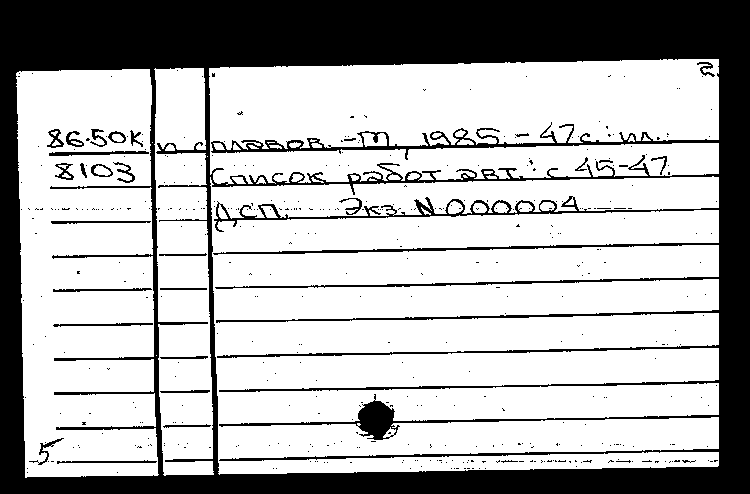 2.
86.50К и сплавов. -М, 1985. - 47с.: ил.
8103 Список работ авт.: с 45-47.
ДСП. Экз. N 000004
5